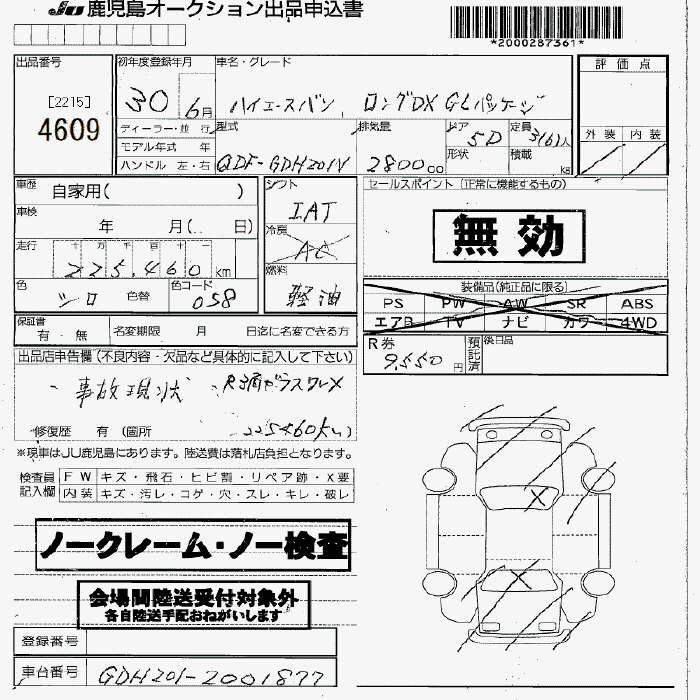 JU 鹿児島オークション出品申込書
*2000287361*
出品番号
[2215]
4609
初年度登録年月
30 6月
車名・グレード
ハイエースバン ロングDX GLパッケージ
評価点
外装 内装
ディーラー・並行
モデル年式 年
ハンドル 左・右
型式
QDF-GDH201V
排気量
2800cc
ドア
5D
形状
定員
3(6)人
積載
kg
車歴 自家用( )
車検 年 月(.. 日)
走行 十 万 千 百 十 一
225,460 km
色 シロ 色替 色コード 058
シフト
IAT
冷房
AC
燃料
軽油
セールスポイント(正常に機能するもの)
無効
装備品(純正品に限る)
PS PW AW SR ABS
エアB TV ナビ カワ 4WD
保証書
有・無
名変期限 月 日迄に名変できる方
R券
9,550円
預託済
後日品
出品店申告欄(不良内容・欠品など具体的に記入して下さい)
事故現状
225460km
修復歴 有(箇所 )
※現車はJU鹿児島にあります。陸送費は落札店負担となります。
検査員記入欄
FW キズ・飛石・ヒビ割・リペア跡・X要
内装 キズ・汚レ・コゲ・穴・スレ・キレ・破レ
ノークレーム・ノー検査
会場間陸送受付対象外
各自陸送手配おねがいします
登録番号
車台番号 GDH201-2001877
X
X